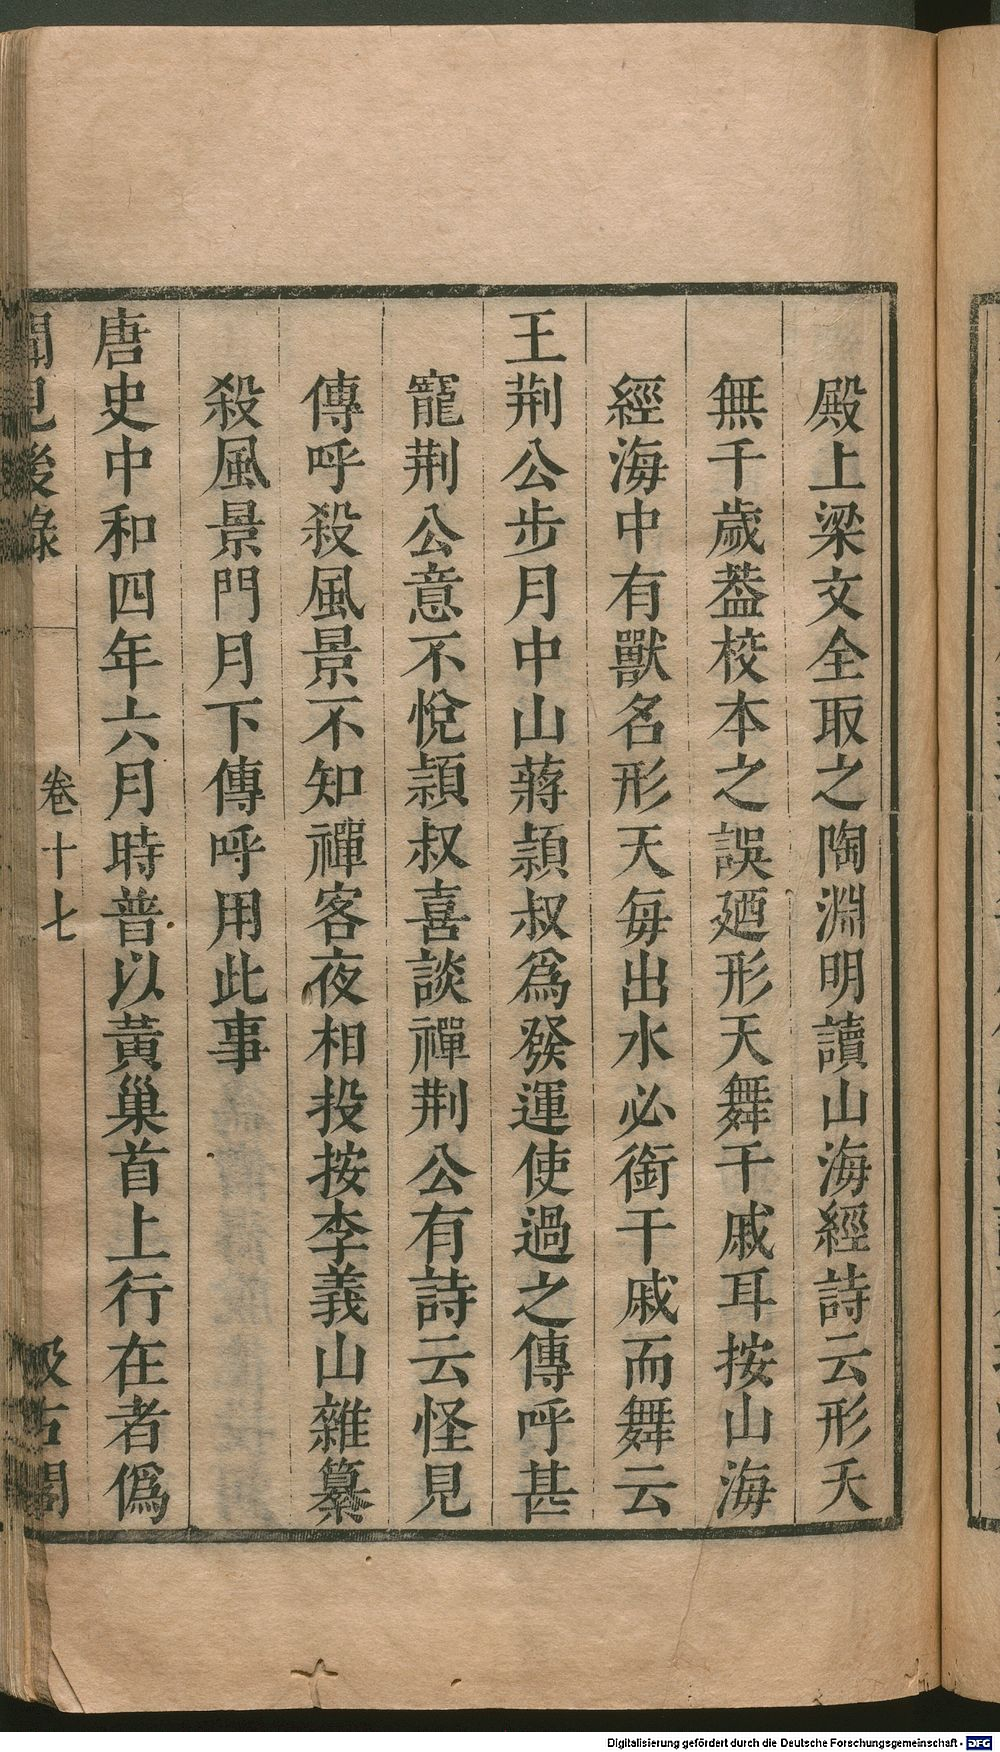 殿上梁文全取之陶淵明讀山海經詩云形夭
無千歲葢校本之誤廼形天舞干戚耳按山海
經海中有獸名形天每出水必銜干戚而舞云
王荆公步月中山蔣頴叔爲發運使過之傳呼甚
寵荆公意不悅頴叔喜談禪荆公有詩云怪見
傳呼殺風景不知禪客夜相投按李義山雜纂
殺風景門月下傳呼用此事
唐史中和四年六月時普以黃巢首上行在者僞
聞見後錄 卷十七 汲古閣
Digitalisierung gefördert durch die Deutsche Forschungsgemeinschaft - DFG